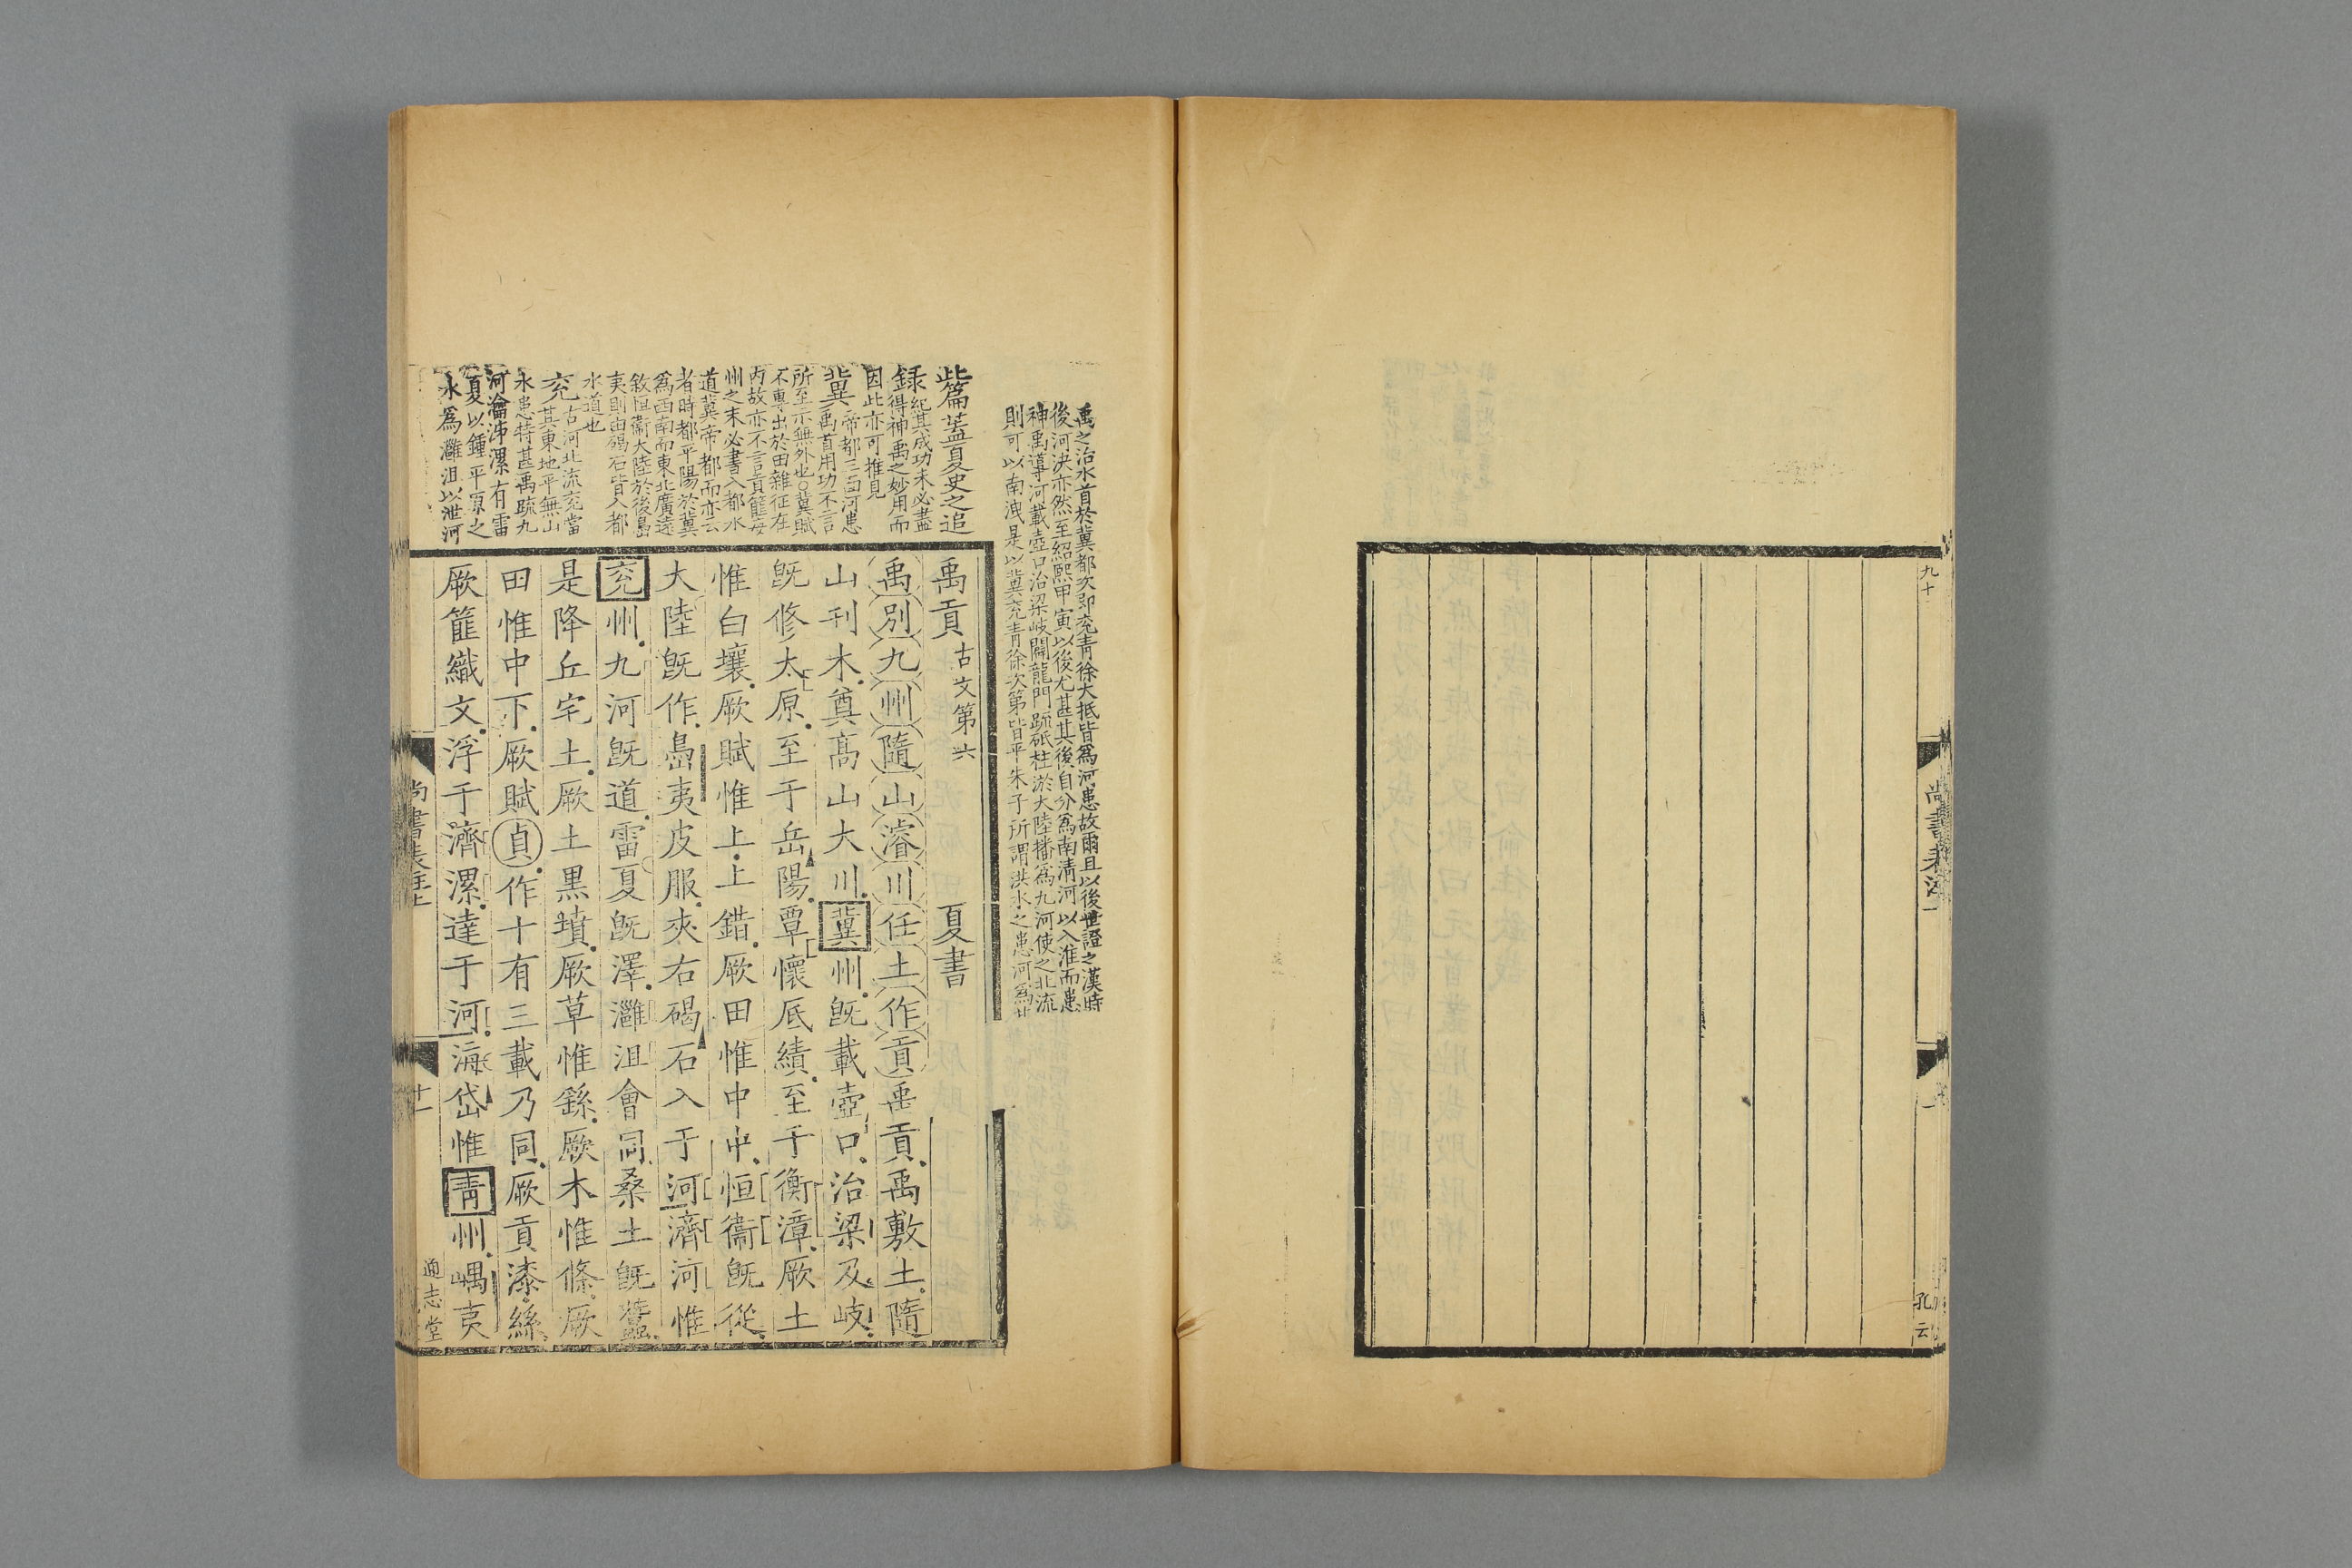 九十
尚書表注
孔云
禹之治水首於冀都次即兖青徐大抵皆爲河患故爾且以後世證之漢時
後河決亦然至紹熙甲寅以後尤甚其後自分爲南清河以入淮而患
神禹導河載壺口治梁岐闢龍門疏砥柱淤大陸播爲九河使之北流
則可以南洩是以冀兖青徐次第皆平朱子所謂洪水之患河爲甚
此篇蓋夏史之追
錄紀其成功未必盡
得神禹之妙用而
因此亦可推見
冀帝都三面河患
禹首用功不言
所至示無外也○冀賦
不專出於田雜征在
內故亦不言貢篚每
州之末必書入都水
道冀帝都而亦云
者時都平陽於冀
爲西南而東北廣遠
敘恒衞大陸於後島
夷則由碣石皆入都
水道也
兖古河北流兖當
其東地平無山
水患特甚禹疏九
河瀹泲漯有雷
夏以鍾平原之
水爲灉沮以泄河
禹貢 古文第六 夏書
禹別九州隨山濬川任土作貢禹貢禹敷土隨
山刊木奠高山大川冀州既載壺口治梁及岐
既修太原至于岳陽覃懷厎績至于衡漳厥土
惟白壤厥賦惟上上錯厥田惟中中恒衞既從
大陸既作島夷皮服夾右碣石入于河濟河惟
兖州九河既道雷夏既澤灉沮會同桑土既蠶
是降丘宅土厥土黑墳厥草惟繇厥木惟條厥
田惟中下厥賦貞作十有三載乃同厥貢漆絲
厥篚織文浮于濟漯達于河海岱惟青州嵎夷
尚書表注上
十一
通志堂